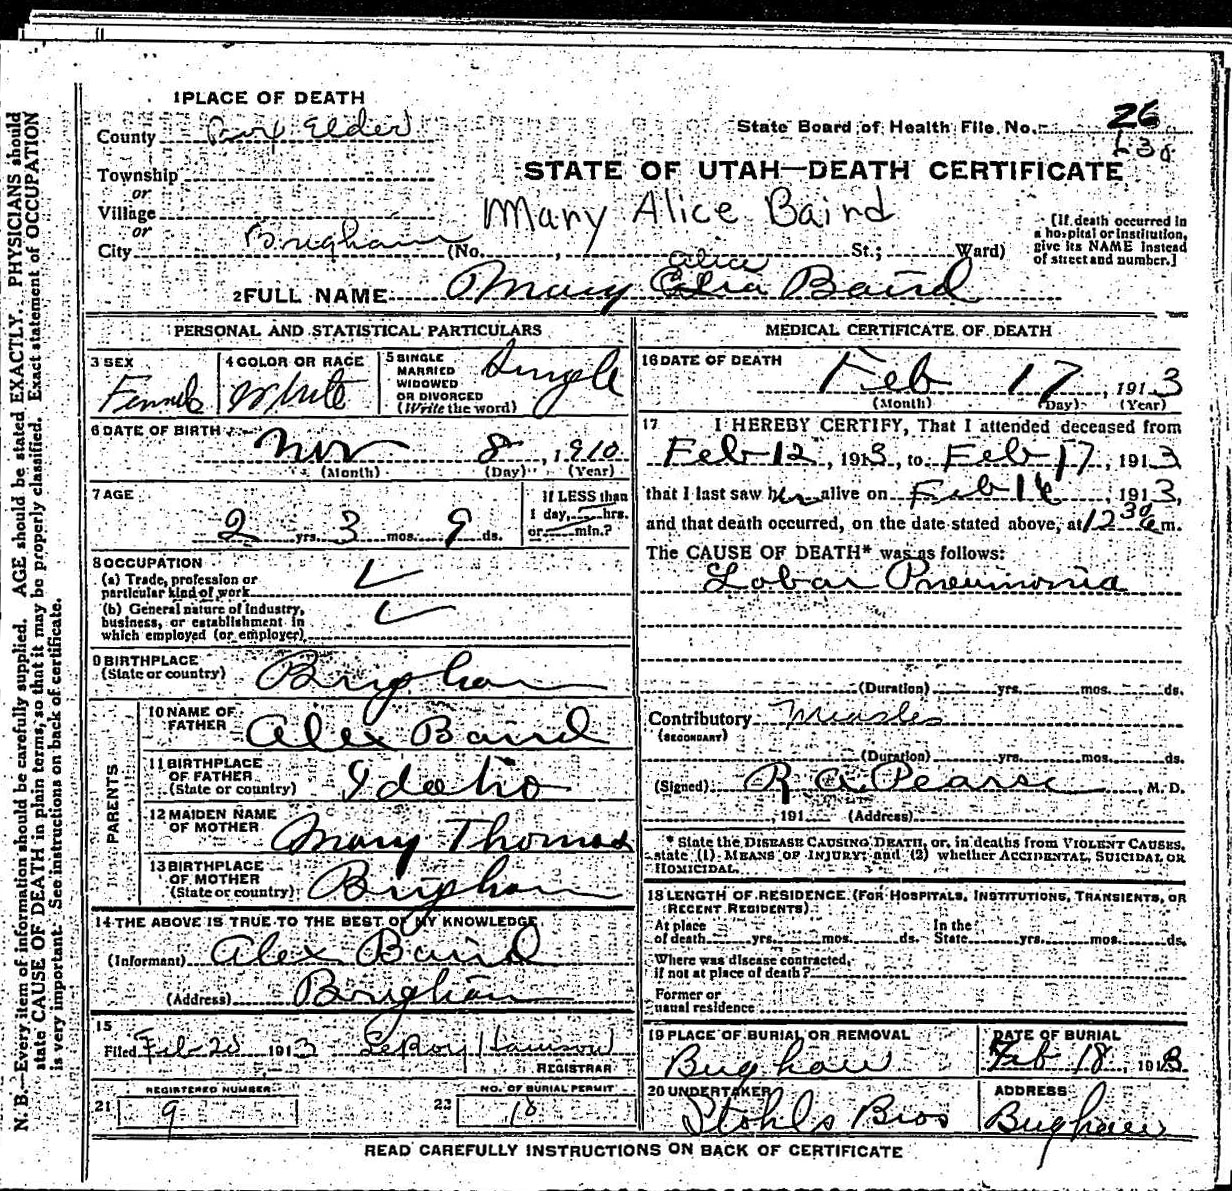 N. B.—Every item of information should be carefully supplied. AGE should be stated EXACTLY. PHYSICIANS should
state CAUSE OF DEATH in plain terms, so that it may be properly classified. Exact statement of OCCUPATION
is very important. See instructions on back of certificate.
1 PLACE OF DEATH
County Box Elder
State Board of Health File No. 26
Township
STATE OF UTAH—DEATH CERTIFICATE
or
Village
Mary Alice Baird
or
City Brigham (No. , St.; Ward)
[If death occurred in
a hospital or institution,
give its NAME instead
of street and number.]
Alice
2 FULL NAME Mary Baird
PERSONAL AND STATISTICAL PARTICULARS
3 SEX
Female
4 COLOR OR RACE
White
5 SINGLE
MARRIED
WIDOWED
OR DIVORCED
(Write the word)
Single
6 DATE OF BIRTH
Nov 8, 1910
(Month) (Day) (Year)
7 AGE
2 yrs. 3 mos. 9 ds.
If LESS than
1 day, hrs.
or min.?
8 OCCUPATION
(a) Trade, profession or
particular kind of work
(b) General nature of industry,
business, or establishment in
which employed (or employer)
9 BIRTHPLACE
(State or country)
Brigham
PARENTS
10 NAME OF
FATHER
Alex Baird
11 BIRTHPLACE
OF FATHER
(State or country)
Idaho
12 MAIDEN NAME
OF MOTHER
Mary Thomas
13 BIRTHPLACE
OF MOTHER
(State or country)
Brigham
14 THE ABOVE IS TRUE TO THE BEST OF MY KNOWLEDGE
(Informant) Alex Baird
(Address) Brigham
15
Filed Feb 20 1913
REGISTRAR
REGISTERED NUMBER
21 9
NO. OF BURIAL PERMIT
22 18
MEDICAL CERTIFICATE OF DEATH
16 DATE OF DEATH
Feb 17, 1913
(Month) (Day) (Year)
17 I HEREBY CERTIFY, That I attended deceased from
Feb 12, 1913, to Feb 17, 1913
that I last saw her alive on Feb 16, 1913,
and that death occurred, on the date stated above, at 12 30 a m.
The CAUSE OF DEATH* was as follows:
Lobar Pneumonia
(Duration) yrs. mos. ds.
Contributory Measles
(SECONDARY)
(Duration) yrs. mos. ds.
(Signed) R A Pearse, M. D.
, 191 (Address)
* State the DISEASE CAUSING DEATH, or, in deaths from VIOLENT CAUSES,
state (1) MEANS OF INJURY; and (2) whether ACCIDENTAL, SUICIDAL OR
HOMICIDAL.
18 LENGTH OF RESIDENCE (FOR HOSPITALS, INSTITUTIONS, TRANSIENTS, OR
RECENT RESIDENTS)
At place
of death yrs. mos. ds.
In the
State yrs. mos. ds.
Where was disease contracted,
if not at place of death?
Former or
usual residence
19 PLACE OF BURIAL OR REMOVAL
Brigham
DATE OF BURIAL
Feb 18, 1913
20 UNDERTAKER
Stohls Bros
ADDRESS
Brigham
READ CAREFULLY INSTRUCTIONS ON BACK OF CERTIFICATE